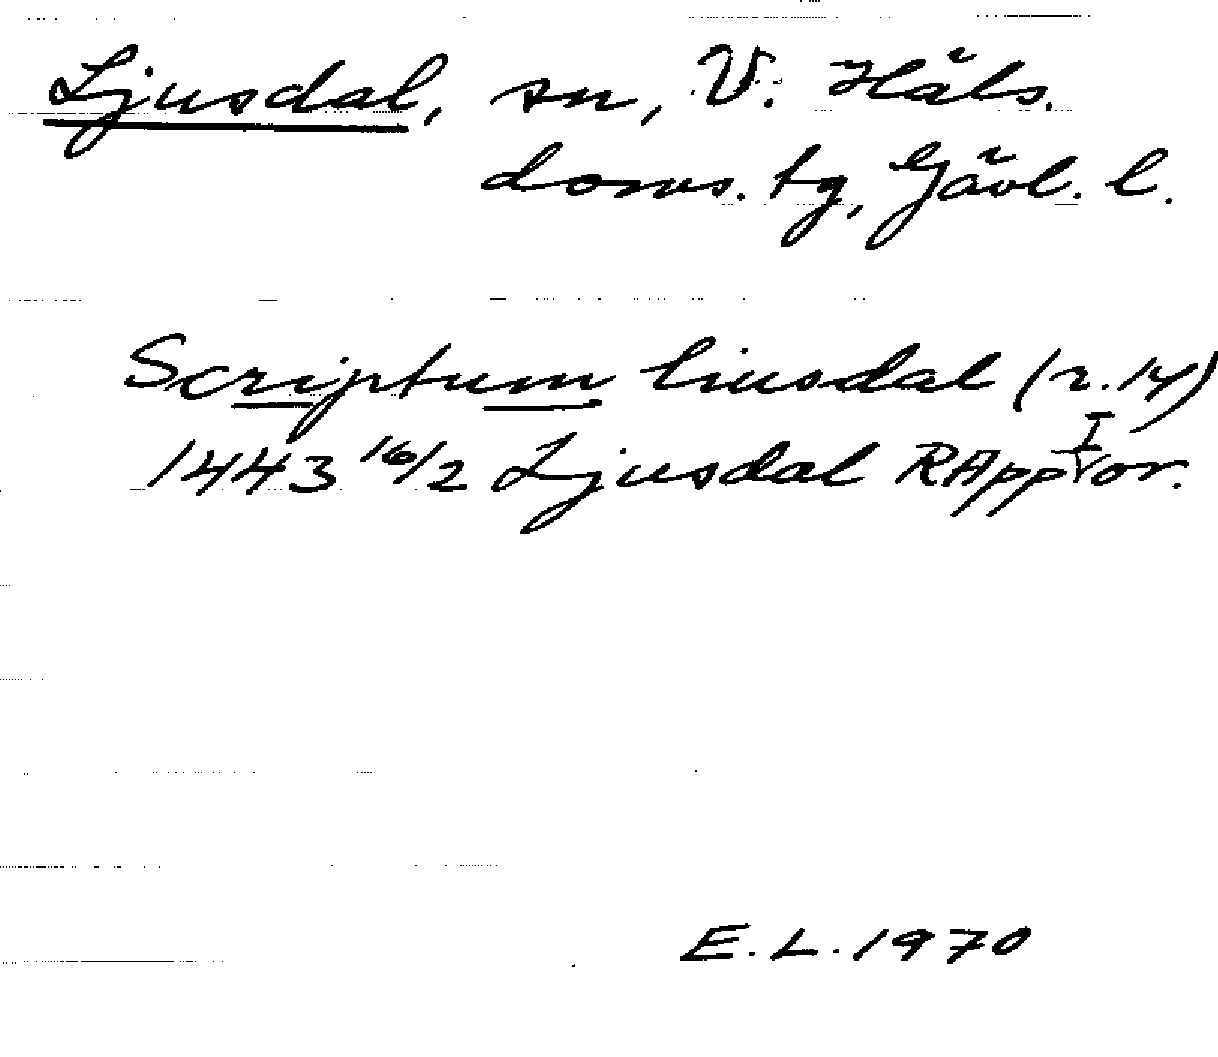 Ljusdal, sn, V. Häls.
doms. tg, Gävl. l.
Scriptum liusdal (r. 14)
1443 16/2 Ljusdal RApp I or.
E. L. 1970